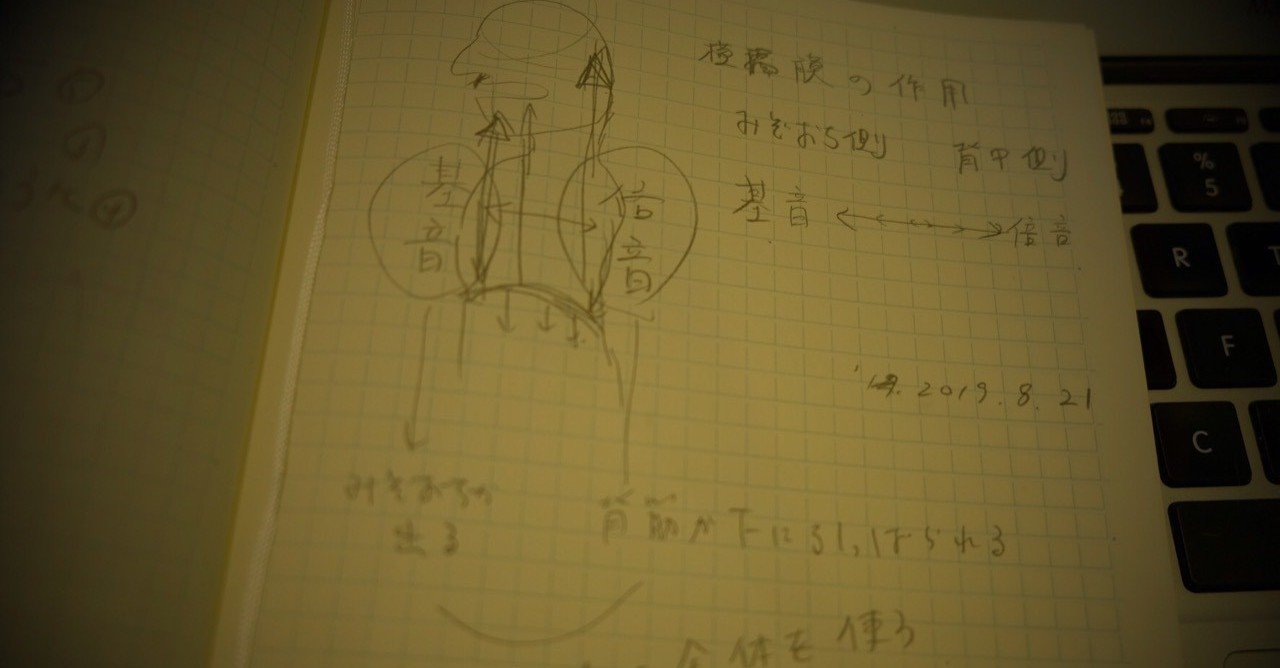 横隔膜の作用
みぞおち側 背中側
基音 倍音
基音
倍音
2019.8.21
みぞおちが
出る
背筋が下にひっぱられる
全体を使う
%
5
R
F
C